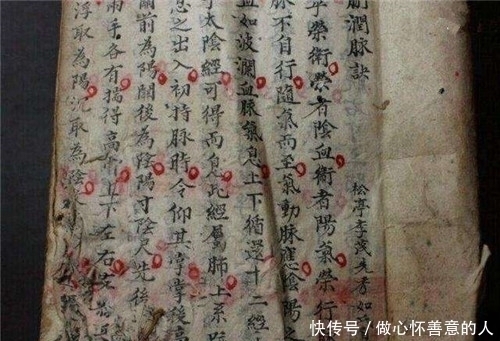 潤脈訣
松亭李茂先考如
榮衛榮者陰血衛者陽氣榮行
脈不自行隨氣而至氣動脈應陰陽之
血如波瀾血脈氣息上下循還十二經
太陰經可得而息此經屬肺上系
息之出入初持脈時令仰其掌掌後高
前為陽關後為陰陽寸陰尺先後
兩手各有揣得高骨上下左右
浮取為陽沉取為陰
快传号/做心怀善意的人